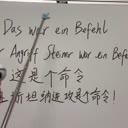 Das war ein Befehl
Angriff Steiner war ein Befe
这是个命令
斯坦纳进攻是个命令!